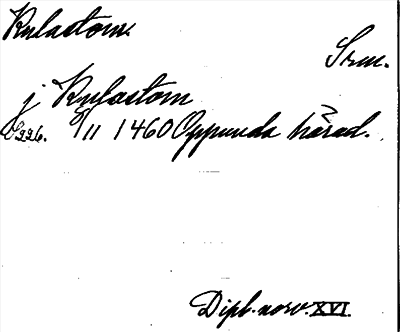 Kulastom.
Srm.
j Kulastom
s. 226. 8/11 1460 Oppunda härad.
Dipl. norv. XVI.